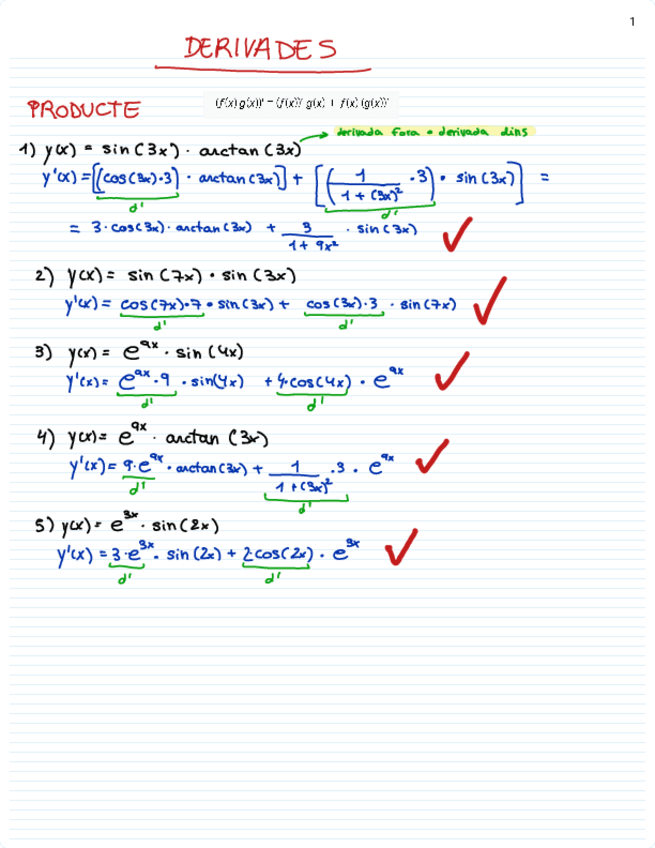 1
DERIVADES
PRODUCTE
(f(x) g(x))' = (f(x))' g(x) + f(x) (g(x))'
derivada fora • derivada dins
1) y(x) = sin(3x) · arctan(3x)
y'(x) = [(cos(3x)·3) · arctan(3x)] + [(1/(1+(3x)²) ·3) · sin(3x)] =
d' d'
= 3·cos(3x)· arctan(3x) + 3/(1+9x²) · sin(3x)
2) y(x) = sin(7x) • sin(3x)
y'(x) = cos(7x)·7 • sin(3x) + cos(3x)·3 · sin(7x)
d' d'
3) y(x) = e^9x · sin(4x)
y'(x) = e^9x · 9 · sin(4x) + 4·cos(4x) · e^9x
d' d'
4) y(x) = e^9x · arctan(3x)
y'(x) = 9·e^9x · arctan(3x) + 1/(1+(3x)²) ·3 · e^9x
d' d'
5) y(x) = e^3x · sin(2x)
y'(x) = 3·e^3x · sin(2x) + 2cos(2x) · e^3x
d' d'